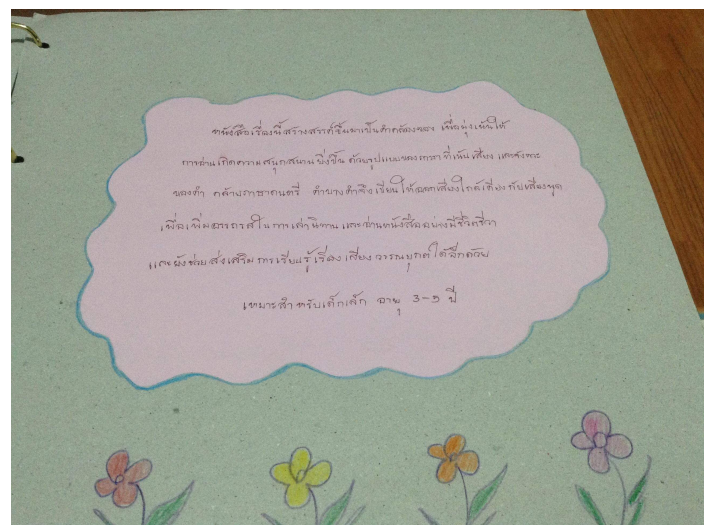 หนังสือเรื่องนี้สร้างสรรค์ขึ้นมาเป็นคำคล้องจอง เพื่อมุ่งเน้นให้
การอ่านเกิดความสนุกสนานยิ่งขึ้น ด้วยรูปแบบของภาษา ที่เน้นเสียง และจังหวะ
ของคำ คล้ายภาษาดนตรี คำบางคำจึงเขียนให้ออกเสียงใกล้เคียงกับเสียงพูด
เพื่อเพิ่มอรรถรสในการเล่านิทาน และอ่านหนังสืออย่างมีชีวิตชีวา
และยังช่วยส่งเสริมการเรียนรู้เรื่อง เสียง วรรณยุกต์ ได้อีกด้วย
เหมาะสำหรับเด็กเล็ก อายุ 3-5 ปี